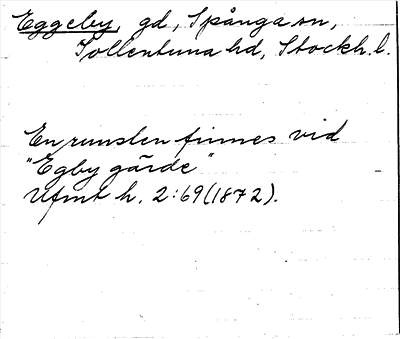 Eggeby, gd, Spånga sn,
Sollentuna hd, Stockh. l.
En runsten finnes vid
"Egby gärde"
Ufmt h. 2:69 (1872).